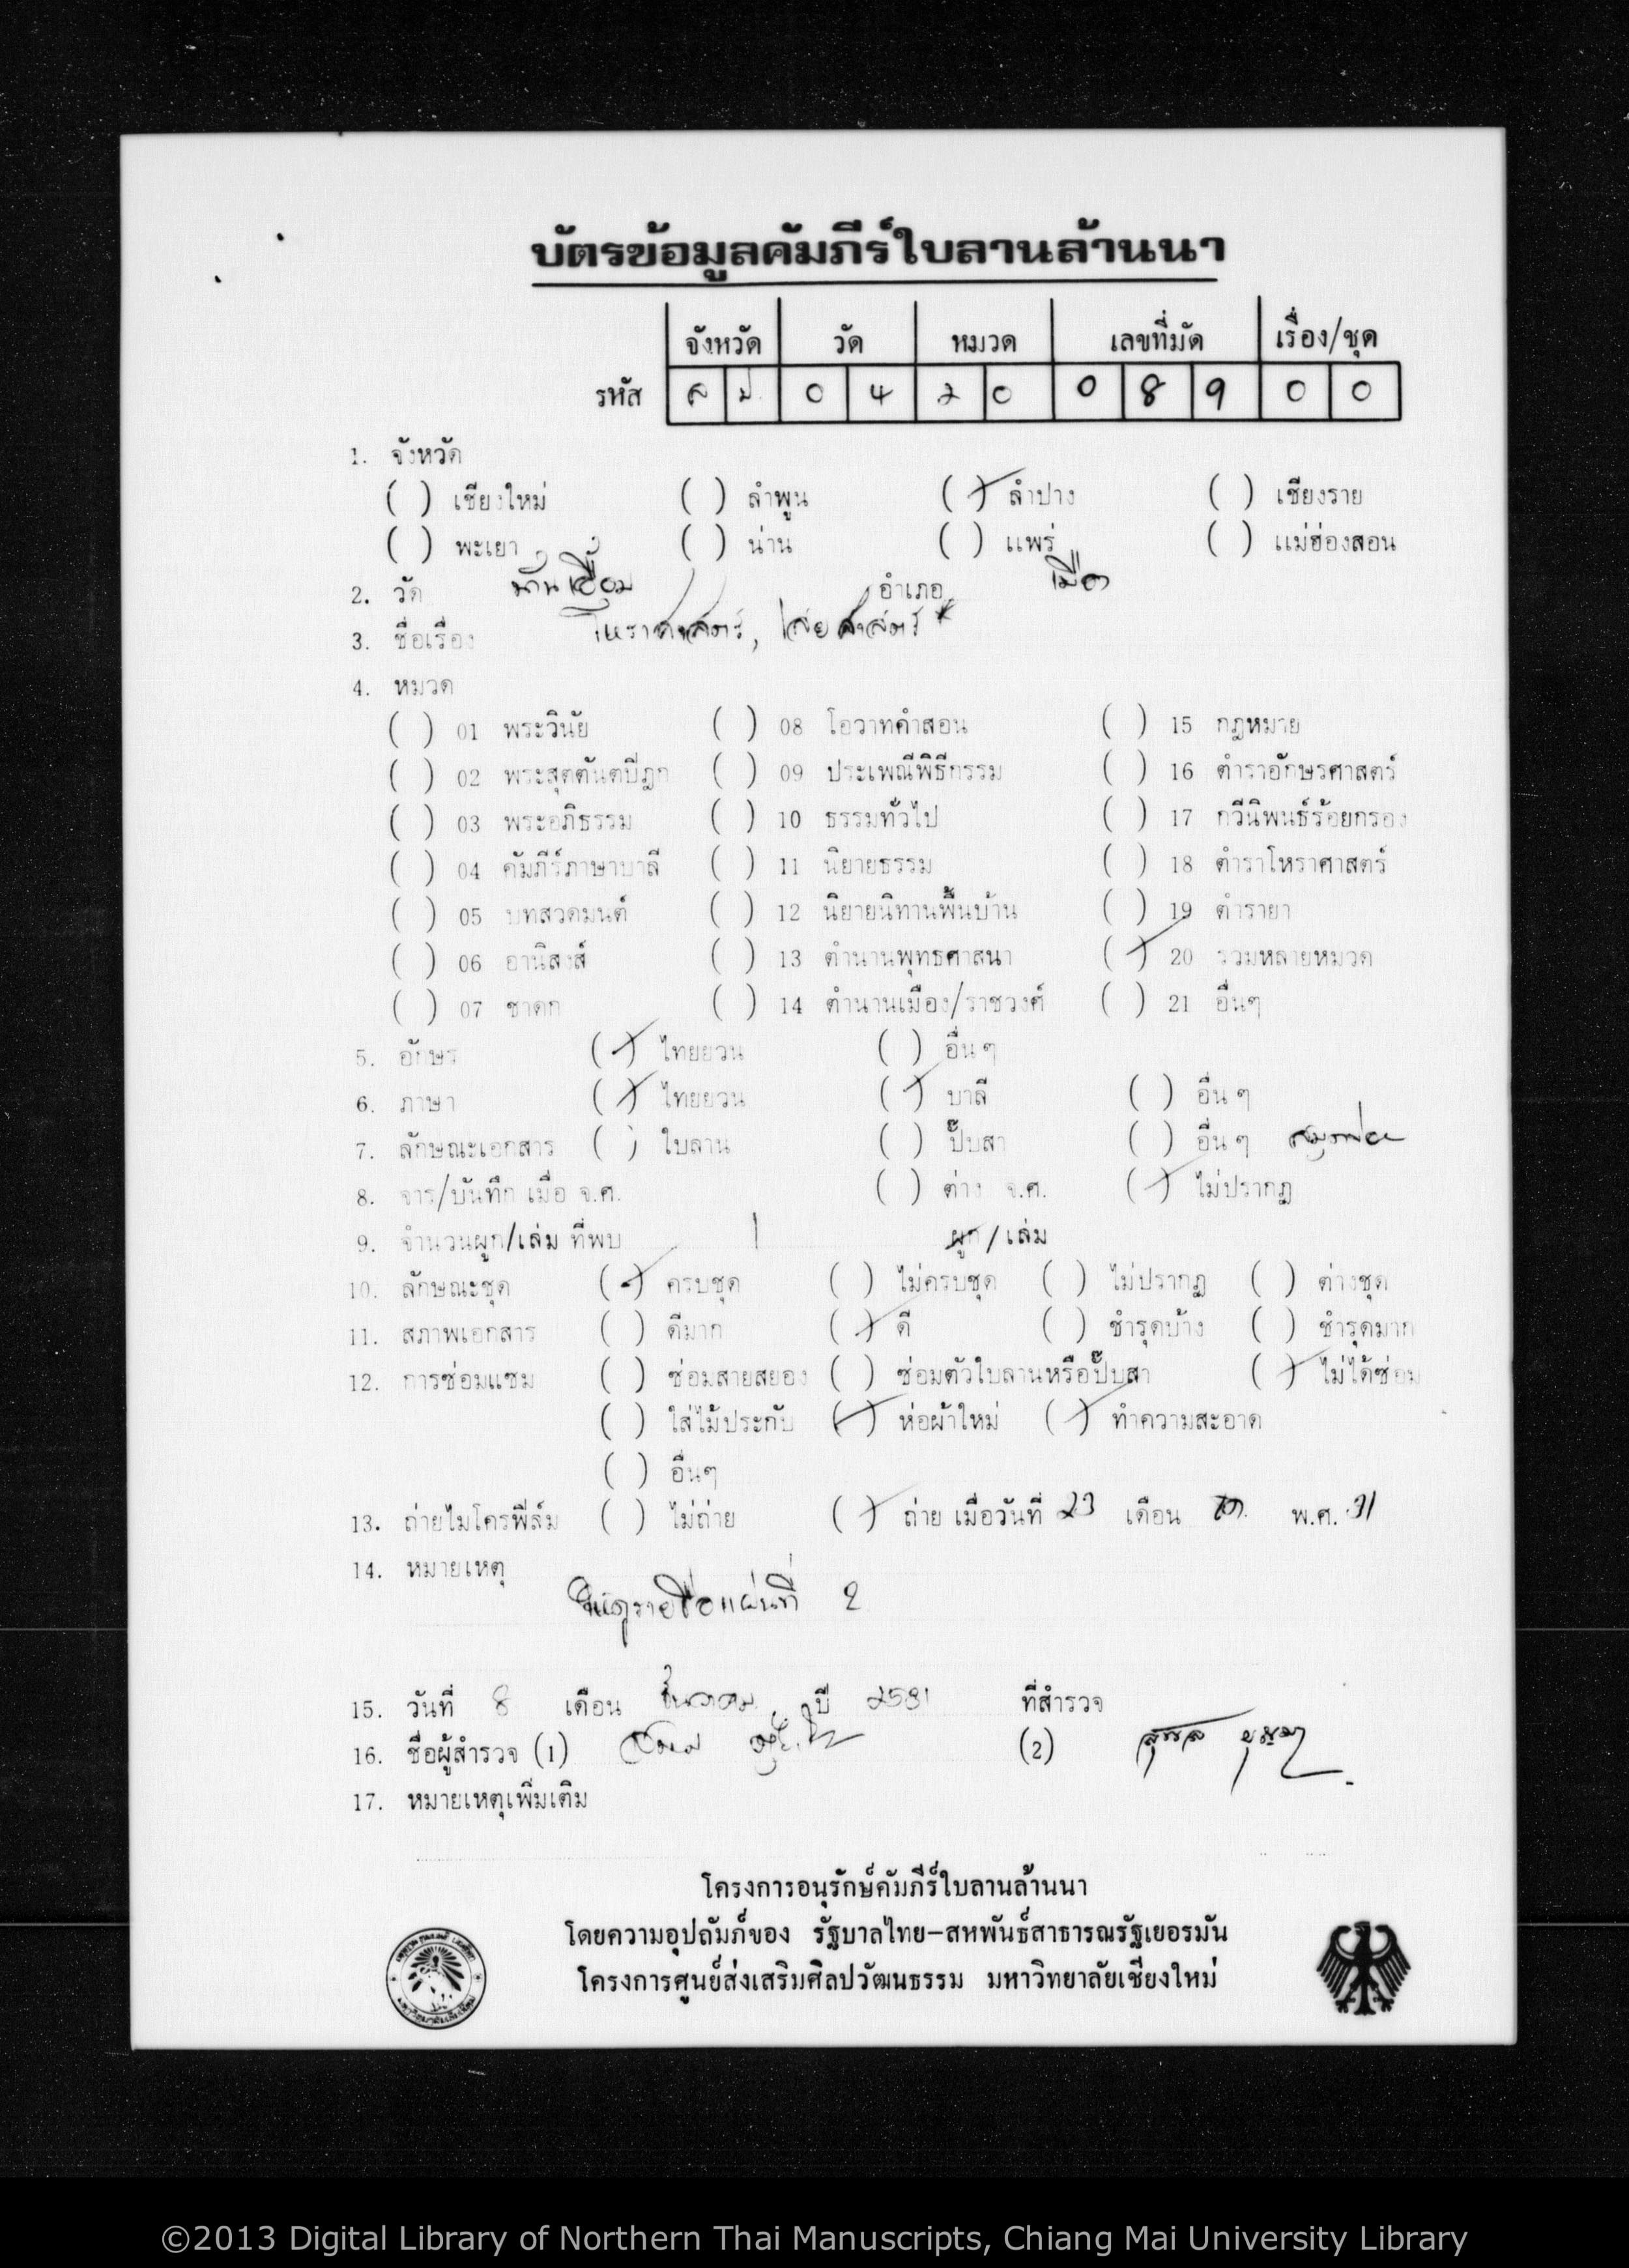 บัตรข้อมูลคัมภีร์ใบลานล้านนา
จังหวัด วัด หมวด เลขที่มัด เรื่อง/ชุด
รหัส ล ป. 0 4 2 0 0 8 9 0 0
1. จังหวัด
( ) เชียงใหม่ ( ) ลำพูน (/) ลำปาง ( ) เชียงราย
( ) พะเยา ( ) น่าน ( ) แพร่ ( ) แม่ฮ่องสอน
2. วัด บ้านเอื้อม อำเภอ เมือง
3. ชื่อเรื่อง โหราศาสตร์, ไสยศาสตร์ *
4. หมวด
( ) 01 พระวินัย ( ) 08 โอวาทคำสอน ( ) 15 กฎหมาย
( ) 02 พระสุตตันตปิฎก ( ) 09 ประเพณีพิธีกรรม ( ) 16 ตำราอักษรศาสตร์
( ) 03 พระอภิธรรม ( ) 10 ธรรมทั่วไป ( ) 17 กวีนิพนธ์ร้อยกรอง
( ) 04 คัมภีร์ภาษาบาลี ( ) 11 นิยายธรรม ( ) 18 ตำราโหราศาสตร์
( ) 05 บทสวดมนต์ ( ) 12 นิยายนิทานพื้นบ้าน ( ) 19 ตำรายา
( ) 06 อานิสงส์ ( ) 13 ตำนานพุทธศาสนา (/) 20 รวมหลายหมวด
( ) 07 ชาดก ( ) 14 ตำนานเมือง/ราชวงศ์ ( ) 21 อื่นๆ
5. อักษร (/) ไทยยวน ( ) อื่นๆ
6. ภาษา (/) ไทยยวน (/) บาลี ( ) อื่นๆ
7. ลักษณะเอกสาร ( ) ใบลาน ( ) ปั๊บสา ( ) อื่นๆ
8. จาร/บันทึก เมื่อ จ.ศ. ( ) ต่าง จ.ศ. (/) ไม่ปรากฏ
9. จำนวนผูก/เล่ม ที่พบ 1 ผูก/เล่ม
10. ลักษณะชุด (/) ครบชุด ( ) ไม่ครบชุด ( ) ไม่ปรากฏ ( ) ต่างชุด
11. สภาพเอกสาร ( ) ดีมาก (/) ดี ( ) ชำรุดบ้าง ( ) ชำรุดมาก
12. การซ่อมแซม ( ) ซ่อมสายสยอง ( ) ซ่อมตัวใบลานหรือปั๊บสา (/) ไม่ได้ซ่อม
( ) ใส่ไม้ประกับ (/) ห่อผ้าใหม่ (/) ทำความสะอาด
( ) อื่นๆ
13. ถ่ายไมโครฟิล์ม ( ) ไม่ถ่าย (/) ถ่าย เมื่อวันที่ 23 เดือน พ.ศ. 31
14. หมายเหตุ
ให้ดูรายชื่อแผ่นที่ 2
15. วันที่ 8 เดือน ธันวาคม ปี 2531 ที่สำรวจ
16. ชื่อผู้สำรวจ (1) (2)
17. หมายเหตุเพิ่มเติม
โครงการอนุรักษ์คัมภีร์ใบลานล้านนา
โดยความอุปถัมภ์ของ รัฐบาลไทย-สหพันธ์สาธารณรัฐเยอรมัน
โครงการศูนย์ส่งเสริมศิลปวัฒนธรรม มหาวิทยาลัยเชียงใหม่
©2013 Digital Library of Northern Thai Manuscripts, Chiang Mai University Library